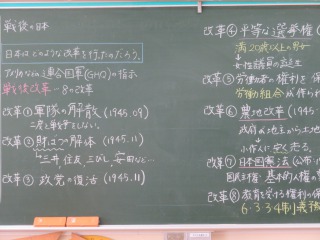 戦後の日本
日本はどのような改革を行ったのだろう。
アメリカなどの連合国軍(GHQ)の指示
戦後改革…8の改革
改革① 軍隊の解散(1945.09)
二度と戦争をしない。
改革② 財ばつ解体(1945.11)
三井、住友、三びし、安田など…
改革③ 政党の復活(1945.11)
改革④ 平等な選挙権(
満20歳以上の男女
→女性議員の誕生
改革⑤ 労働者の権利を保
労働組合が作られ
改革⑥ 農地改革(1945.
政府が地主から土地
→小作人に安く売る。
改革⑦ 日本国憲法(公布・1
国民主権・基本的人権の
改革⑧ 教育を受ける権利の保
6・3・3・4制 義務